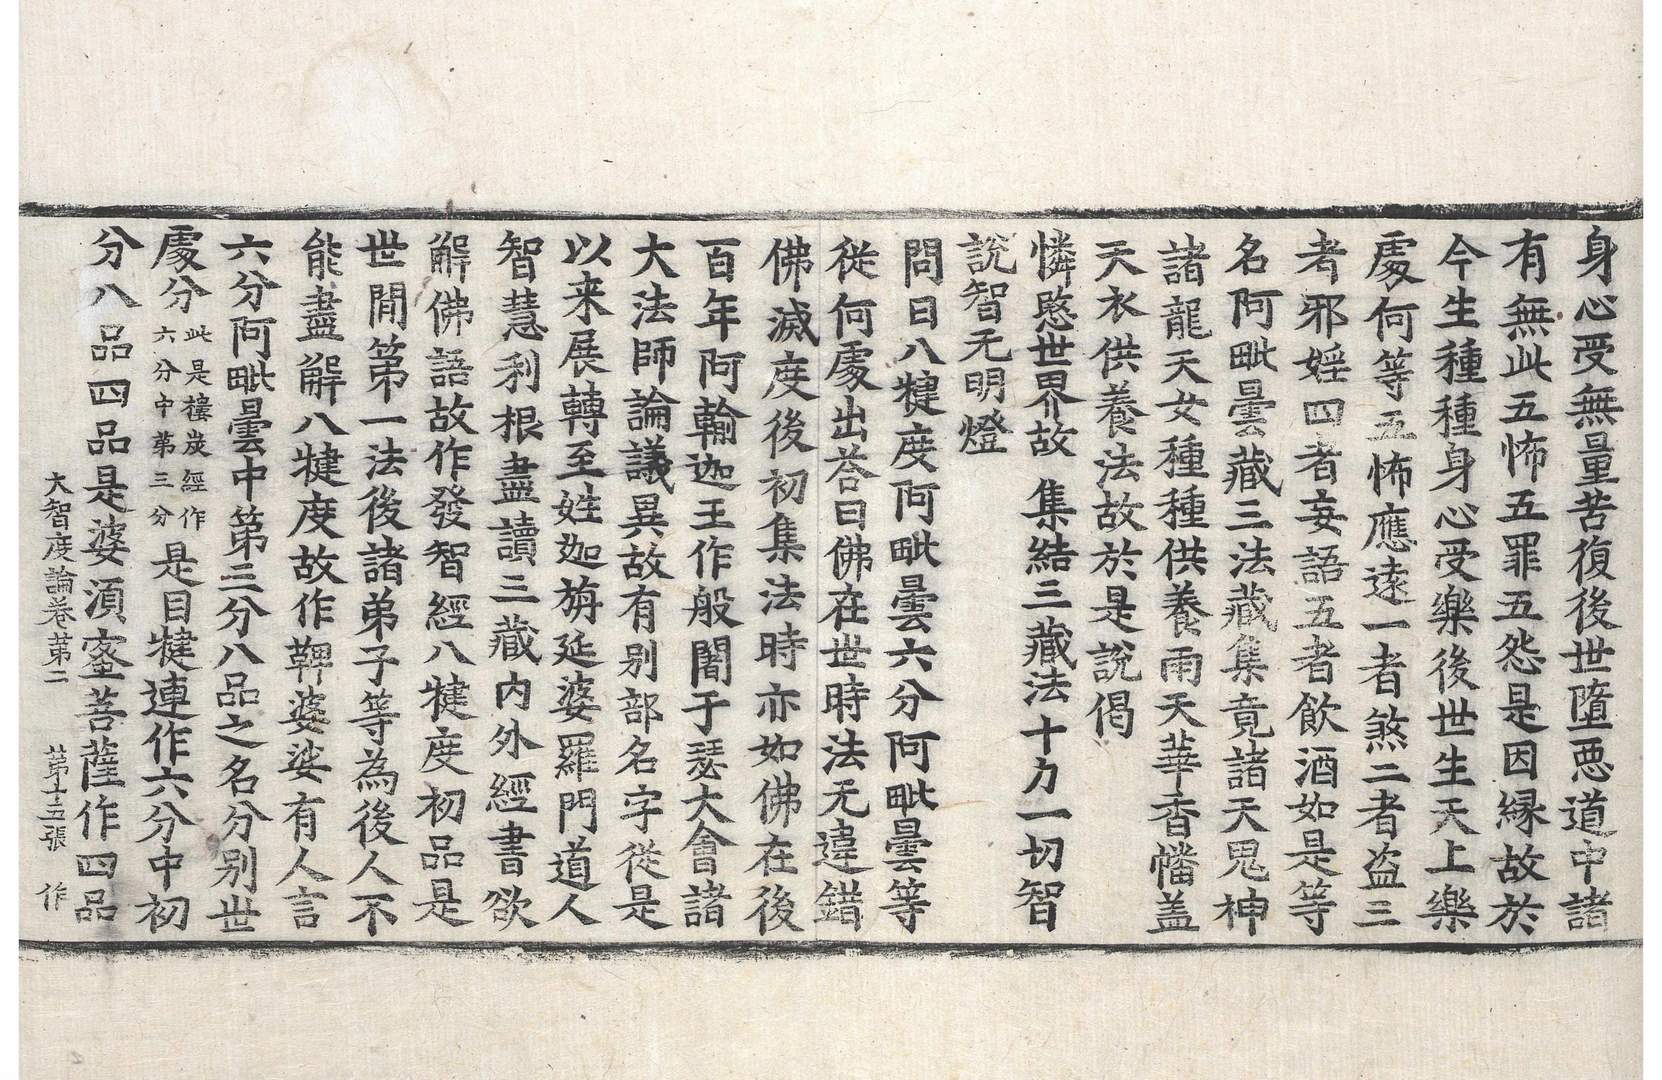 身心受無量苦復後世墮惡道中諸
有無此五怖五罪五怨是因緣故於
今生種種身心受樂後世生天上樂
處何等五怖應遠一者煞二者盜三
者邪婬四者妄語五者飲酒如是等
名阿毗曇藏三法藏集竟諸天鬼神
諸龍天女種種供養雨天華香幡蓋
天衣供養法故於是說偈
憐愍世界故 集結三藏法十力一切智
說智无明燈
問曰八犍度阿毗曇六分阿毗曇等
從何處出荅曰佛在世時法无違錯
佛滅度後初集法時亦如佛在後
百年阿輸迦王作般闍于瑟大會諸
大法師論議異故有別部名字從是
以来展轉至姓迦旃延婆羅門道人
智慧利根盡讀三藏內外經書欲
解佛語故作發智經八犍度初品是
世間第一法後諸弟子等為後人不
能盡解八犍度故作鞞婆娑有人言
六分阿毗曇中第三分八品之名分別世
處分此是樓炭經作六分中第三分是目犍連作六分中初
分八品四品是婆湏蜜菩薩作四品
大智度論卷第二 第十五張 作